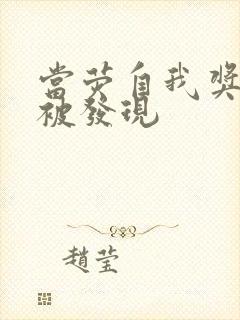 當荧自我獎
被發現
趙莹